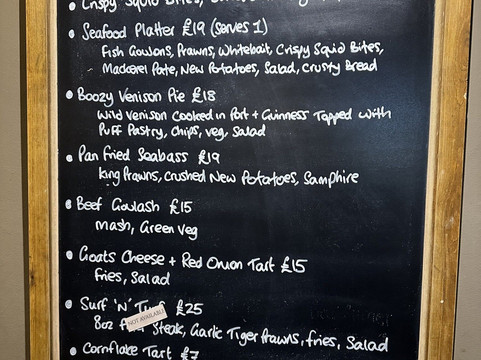 Crispy Squid Bites,
Seafood Platter £19 (serves 1)
Fish Goujons, Prawns, Whitebait, Crispy Squid Bites,
Mackerel Pate, New Potatoes, Salad, Crusty Bread
Boozy Venison Pie £18
Wild Venison Cooked in Port + Guinness Topped with
Puff Pastry, Chips, Veg, Salad
Pan Fried Seabass £19
King Prawns, Crushed New Potatoes, Samphire
Beef Goulash £15
Mash, Green Veg
Goats Cheese + Red Onion Tart £15
Fries, Salad
Surf 'N' Turf £25
NOT AVAILABLE
8oz Steak, Garlic Tiger Prawns, Fries, Salad
Cornflake Tart £7